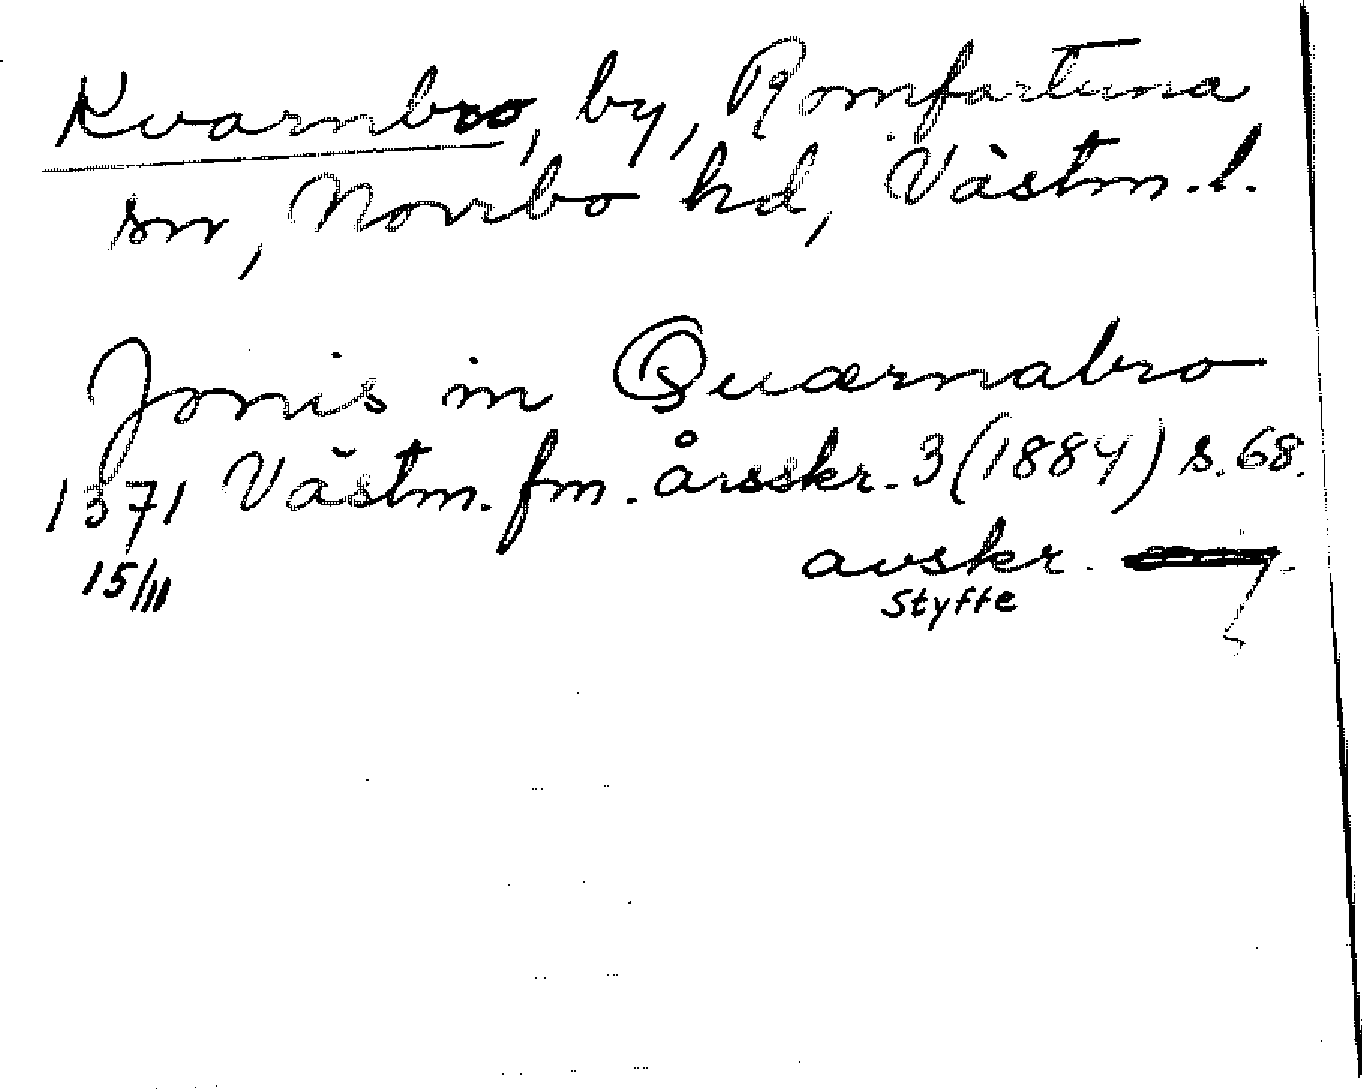 Kvarnbro, by, Romfartuna
sn, Norrbo hd, Västm. l.
Jonis in Quærnabro
1371 Västm. fm. årsskr. 3 (1884) s. 68.
15/III avskr.
Styffe